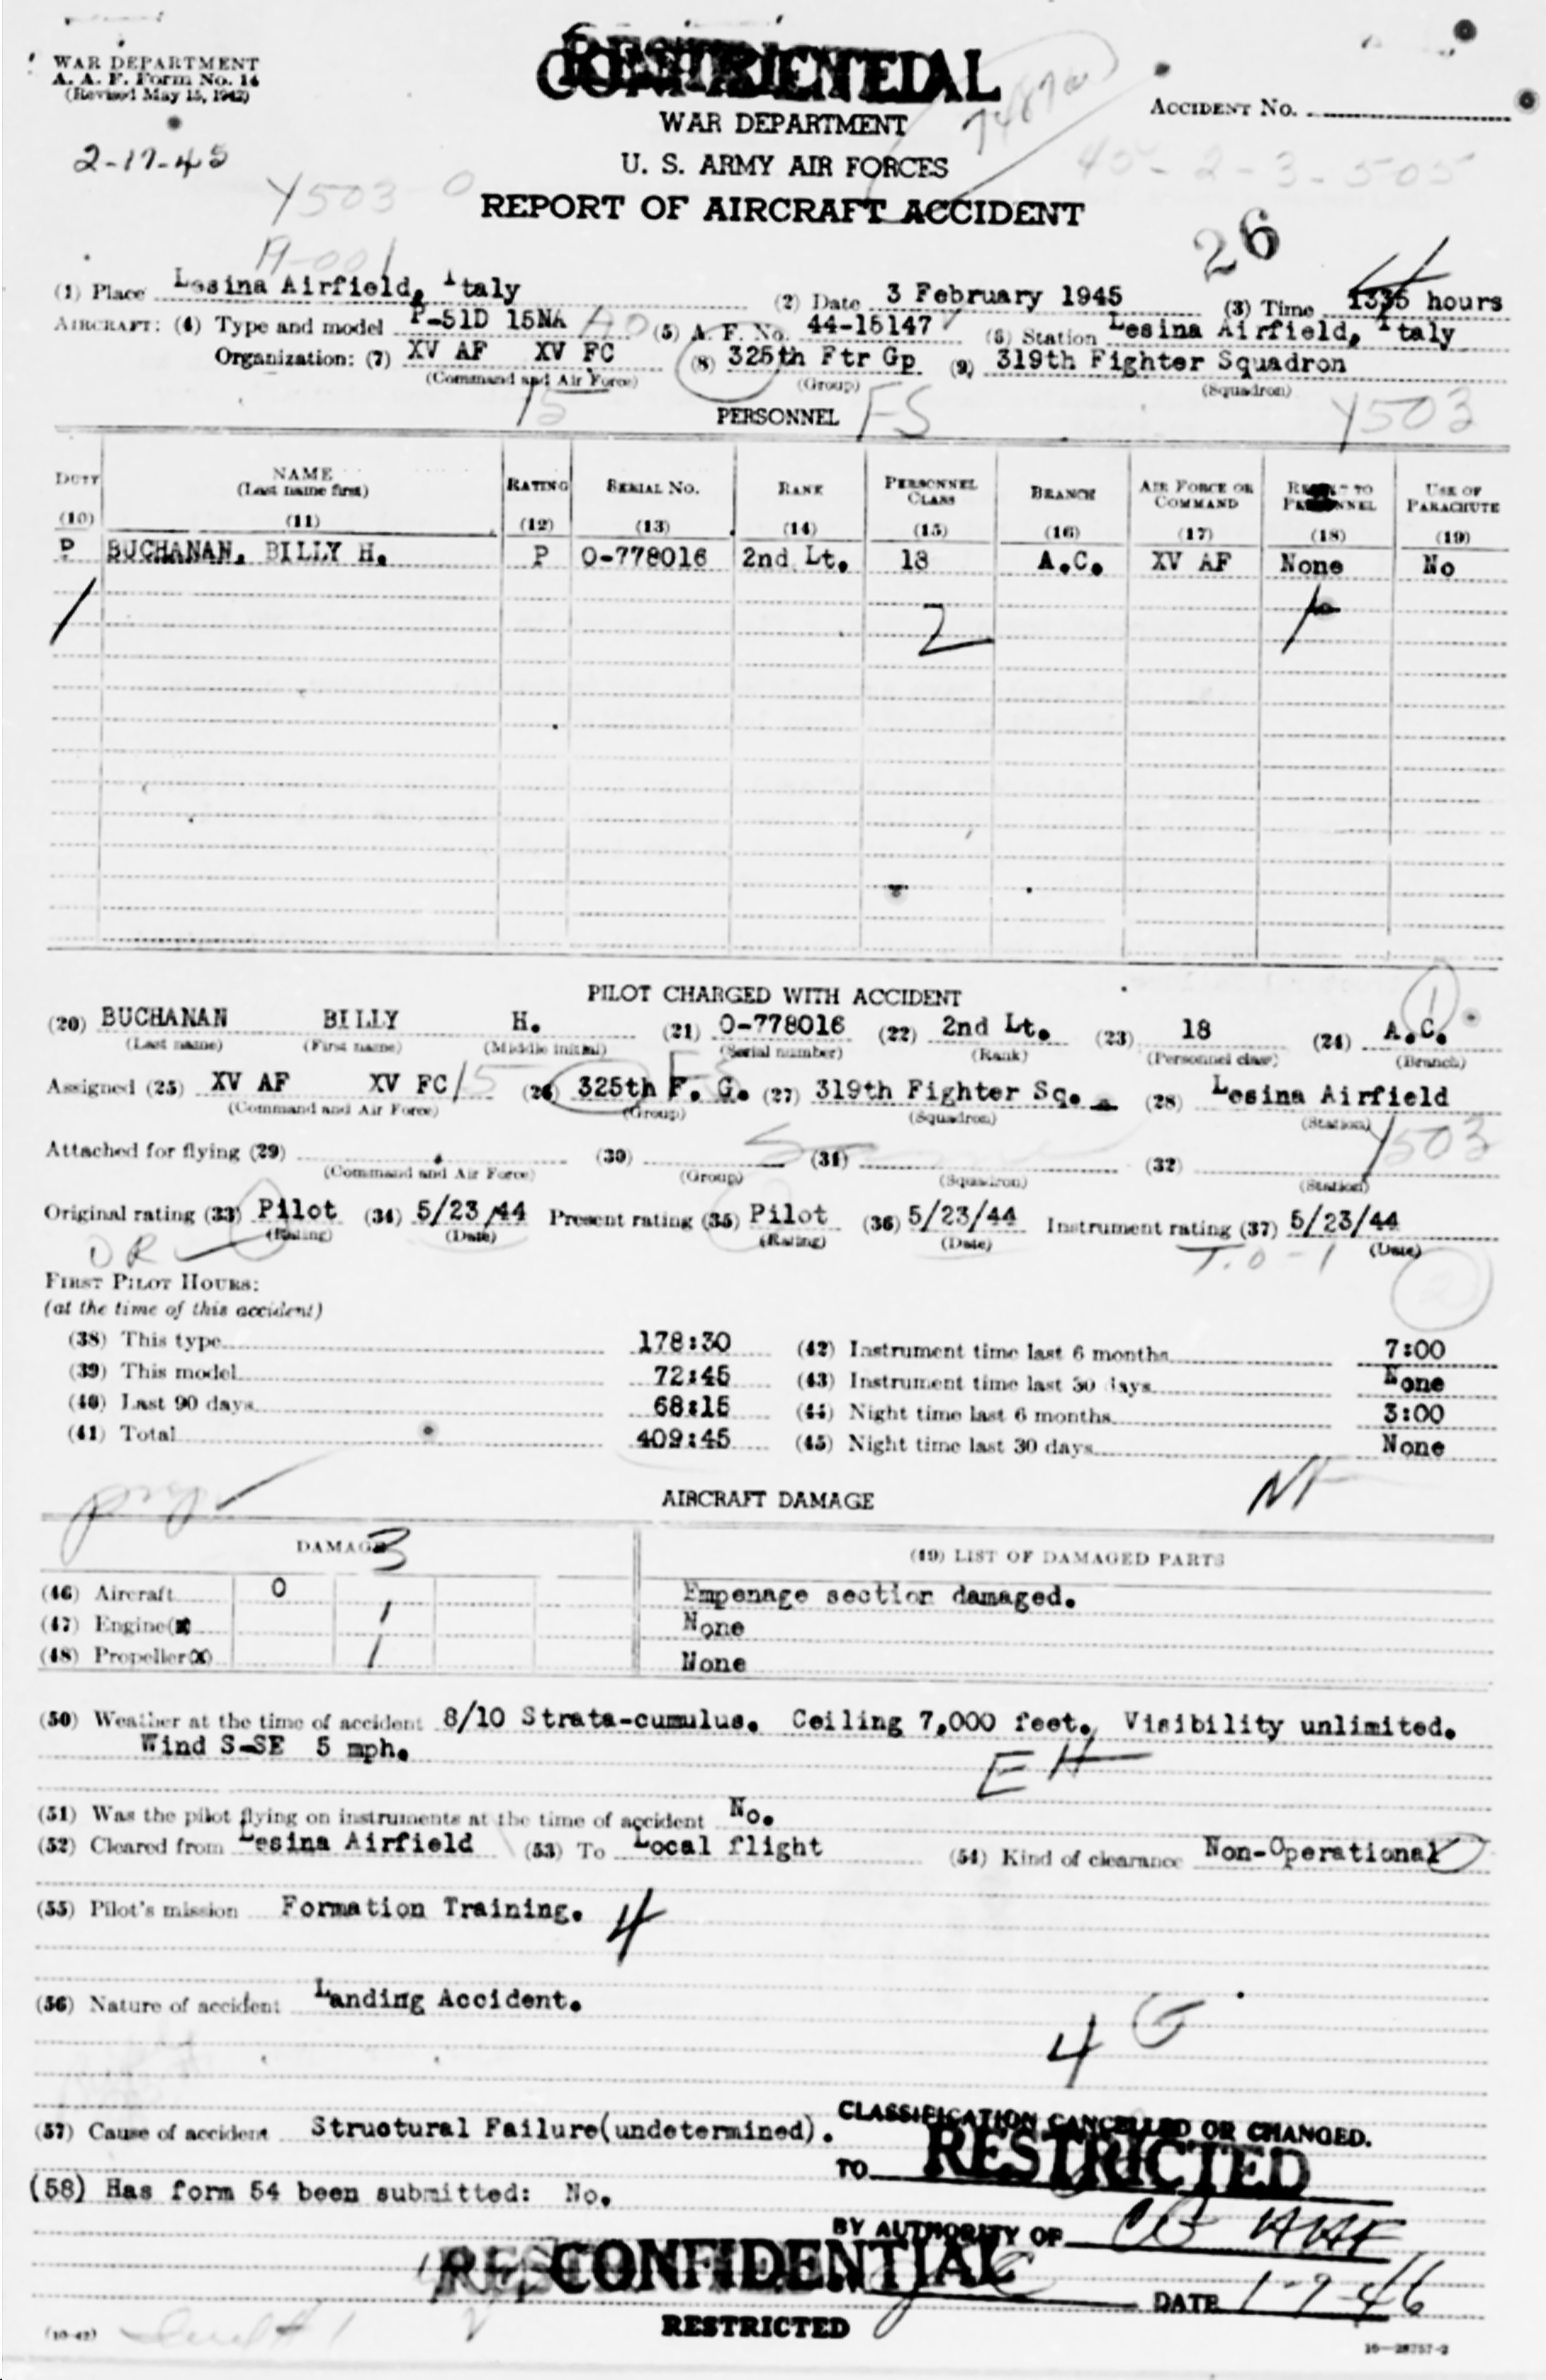 WAR DEPARTMENT
A. A. F. Form No. 14
(Revised May 15, 1942)
2-17-45
CONFIDENTIAL
RESTRICTED
WAR DEPARTMENT
U. S. ARMY AIR FORCES
REPORT OF AIRCRAFT ACCIDENT
ACCIDENT No.
45-2-3-505
Y503 0
A-001
26
(1) Place Lesina Airfield, Italy (2) Date 3 February 1945 (3) Time 1335 hours
AIRCRAFT: (4) Type and model P-51D 15NA (5) A. F. No. 44-15147 (6) Station Lesina Airfield, Italy
Organization: (7) XV AF XV FC (8) 325th Ftr Gp (9) 319th Fighter Squadron
(Command and Air Force) (Group) (Squadron)
15 FS Y503
PERSONNEL
DUTY NAME (Last name first) RATING SERIAL NO. RANK PERSONNEL CLASS BRANCH AIR FORCE OR COMMAND RESULT TO PERSONNEL USE OF PARACHUTE
(10) (11) (12) (13) (14) (15) (16) (17) (18) (19)
P BUCHANAN, BILLY H. P O-778016 2nd Lt. 18 A.C. XV AF None No
2
PILOT CHARGED WITH ACCIDENT
(20) BUCHANAN BILLY H. (21) O-778016 (22) 2nd Lt. (23) 18 (24) A.C.
(Last name) (First name) (Middle initial) (Serial number) (Rank) (Personnel class) (Branch)
Assigned (25) XV AF XV FC 15 (26) 325th F. G. (27) 319th Fighter Sq. (28) Lesina Airfield
(Command and Air Force) (Group) (Squadron) (Station)
Y503
Attached for flying (29) (30) (31) (32)
(Command and Air Force) (Group) (Squadron) (Station)
Original rating (33) Pilot (34) 5/23/44 Present rating (35) Pilot (36) 5/23/44 Instrument rating (37) 5/23/44
(Rating) (Date) (Rating) (Date) (Date)
T.O-1
FIRST PILOT HOURS:
(at the time of this accident)
(38) This type 178:30 (42) Instrument time last 6 months 7:00
(39) This model 72:45 (43) Instrument time last 30 days None
(40) Last 90 days 68:15 (44) Night time last 6 months 3:00
(41) Total 409:45 (45) Night time last 30 days None
AIRCRAFT DAMAGE
DAMAGE 3 (49) LIST OF DAMAGED PARTS
(46) Aircraft 0 Empenage section damaged.
(47) Engine(s) None
(48) Propeller(s) None
(50) Weather at the time of accident 8/10 Strata-cumulus. Ceiling 7,000 feet. Visibility unlimited.
Wind S-SE 5 mph.
EH
(51) Was the pilot flying on instruments at the time of accident No.
(52) Cleared from Lesina Airfield (53) To Local flight (54) Kind of clearance Non-Operational
(55) Pilot's mission Formation Training.
4
(56) Nature of accident Landing Accident.
4 G
(57) Cause of accident Structural Failure(undetermined).
CLASSIFICATION CANCELLED OR CHANGED.
TO RESTRICTED
(58) Has form 54 been submitted: No.
BY AUTHORITY OF CG AAF
CONFIDENTIAL
DATE 1-7-46
RESTRICTED
(10-42)
16—28757-2